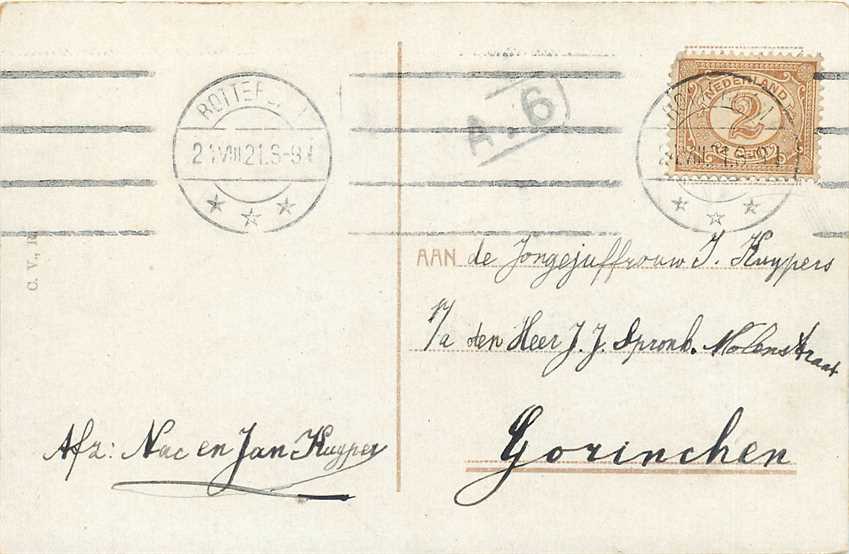 ROTTERDAM
21.VIII.21.8-9
A.6
NEDERLAND
2
C. V.,
AAN de Jongejuffrouw J. Kuypers
p/a den Heer J. J. Spronk. Molenstraat
Gorinchen
Afz: Nac en Jan Kuyper